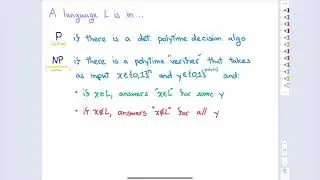 A language L is in...
P if there is a det. polytime decision algo
NP if there is a polytime "verifier" that takes
as input x∈{0,1}ⁿ and y∈{0,1} and:
• if x∈L, answers "x∈L" for some y
• if x∉L, answers "x∉L" for all y